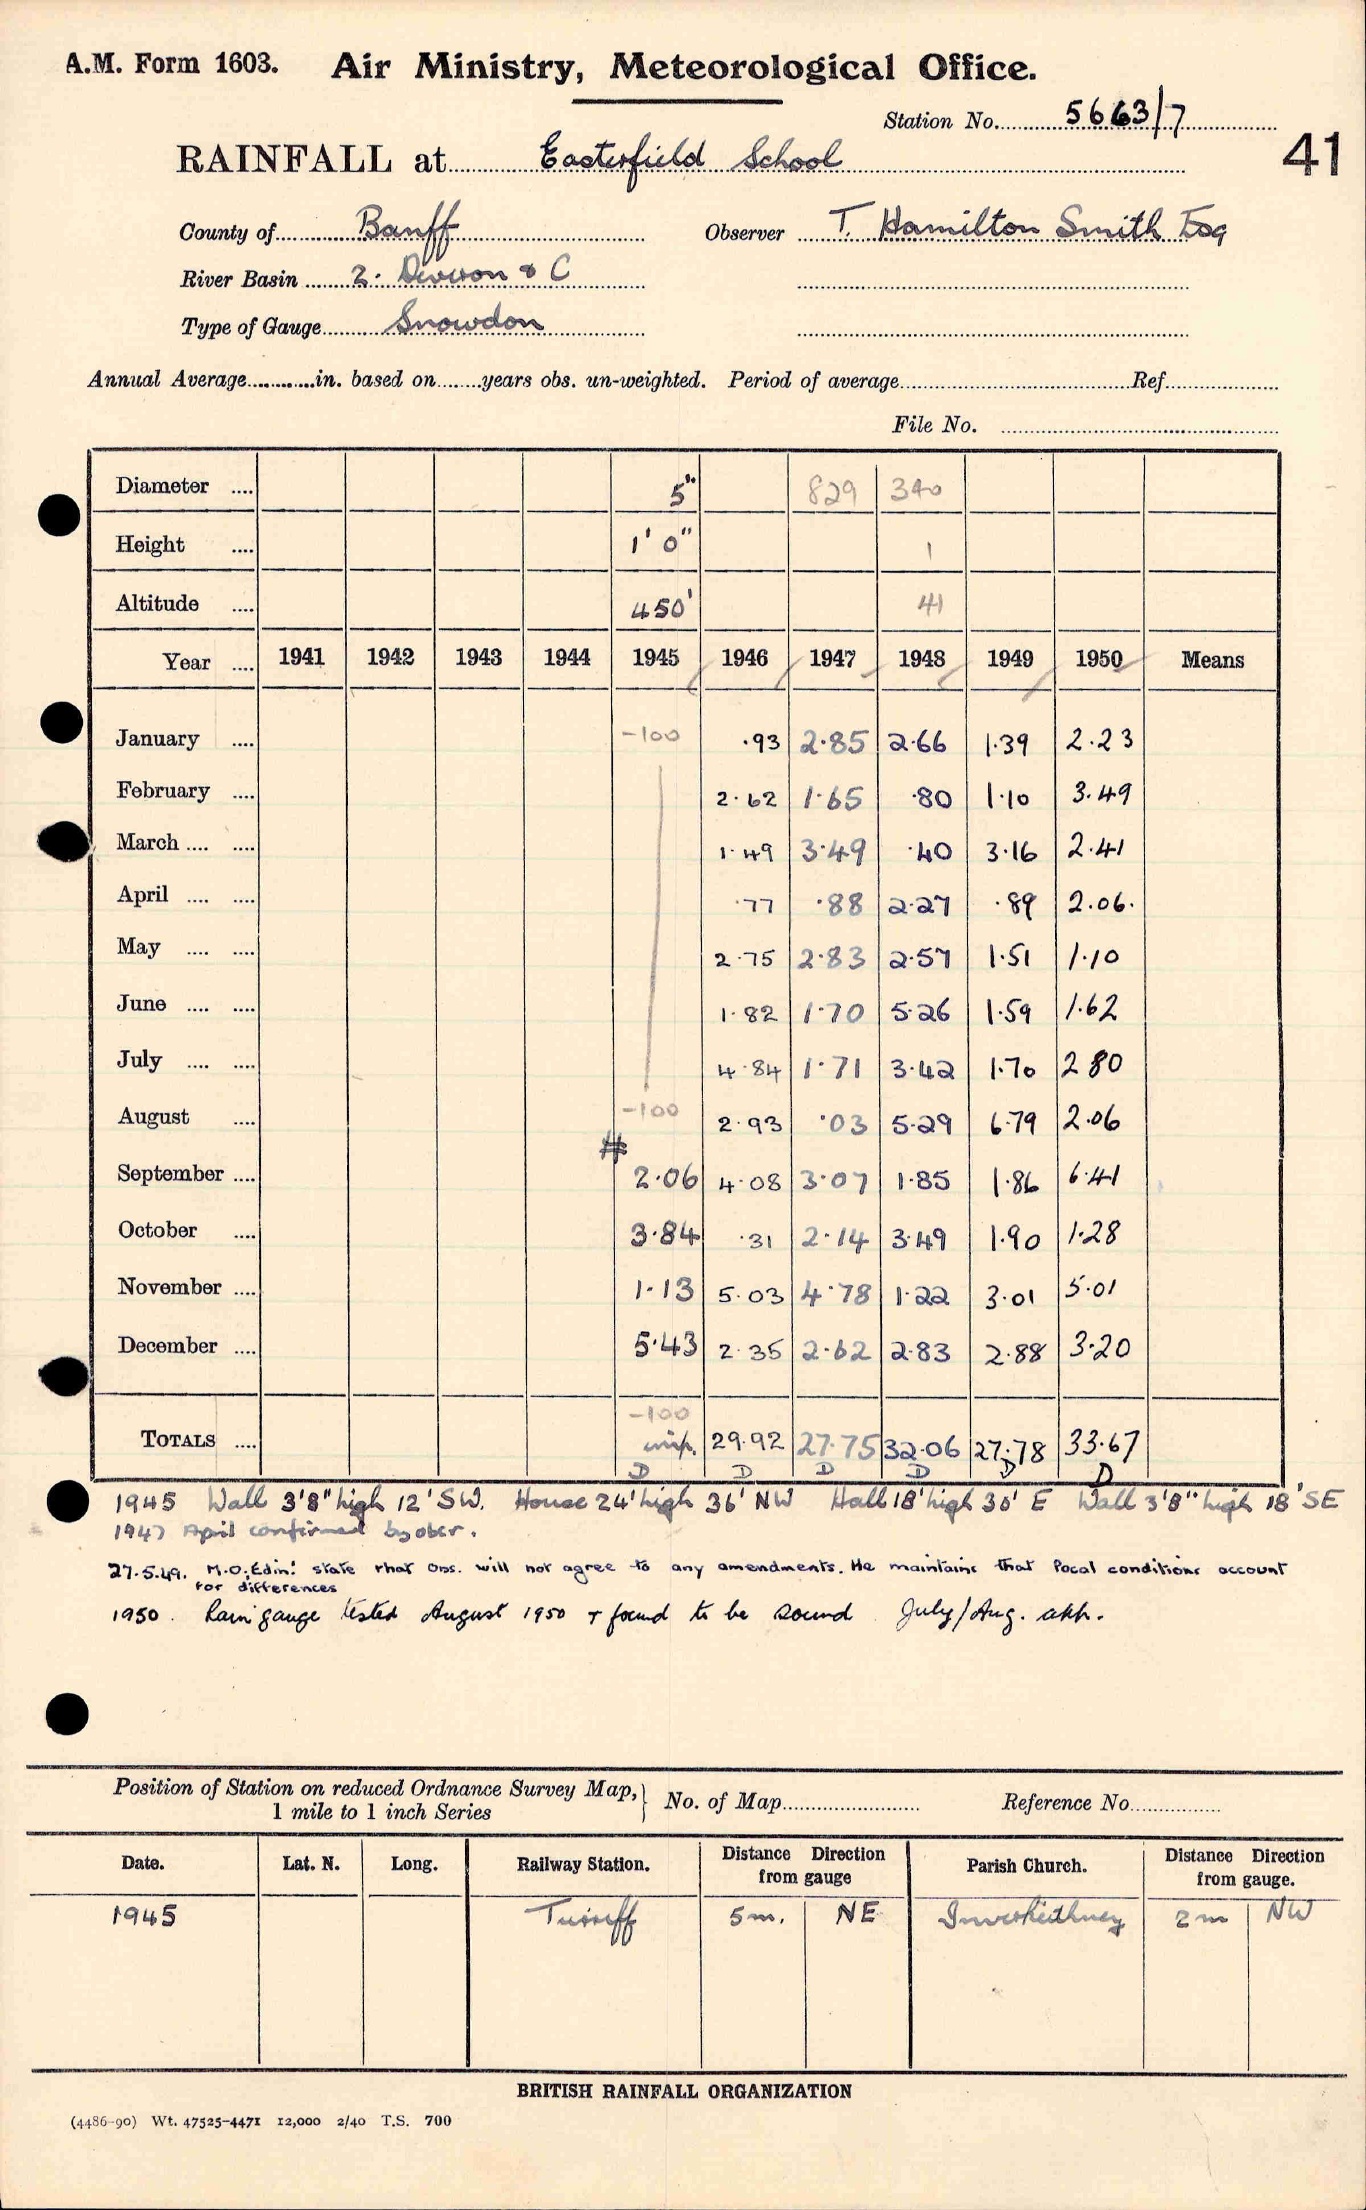 A.M. Form 1603. Air Ministry, Meteorological Office.
Station No. 5663/7
41
RAINFALL at Easterfield School
County of Banff Observer T. Hamilton Smith Esq
River Basin 2. Deveron & C
Type of Gauge Snowdon
Annual Average in. based on years obs. un-weighted. Period of average Ref.
File No.
Diameter 5" 829 340
Height 1' 0" 1
Altitude 450' 41
Year 1941 1942 1943 1944 1945 1946 1947 1948 1949 1950 Means
January -100 .93 2.85 2.66 1.39 2.23
February 2.62 1.65 .80 1.10 3.49
March 1.49 3.49 .40 3.16 2.41
April .77 .88 2.27 .89 2.06.
May 2.75 2.83 2.57 1.51 1.10
June 1.82 1.70 5.26 1.59 1.62
July 4.84 1.71 3.42 1.70 2 80
August -100 2.93 .03 5.29 6.79 2.06
#
September 2.06 4.08 3.07 1.85 1.86 6.41
October 3.84 .31 2.14 3.49 1.90 1.28
November 1.13 5.03 4.78 1.22 3.01 5.01
December 5.43 2.35 2.62 2.83 2.88 3.20
-100
TOTALS 29.92 27.75 32.06 27.78 33.67
D D D D D D
1945 Wall 3'8" high 12' SW. House 24' high 36' NW Hall 18' high 30' E Wall 3'8" high 18' SE
1947 April confirmed by obsr.
27.5.49. M.O. Edin: state that Obs. will not agree to any amendments. He maintains that local conditions account
for differences
1950. Rain gauge tested August 1950 + found to be sound July/Aug.
Position of Station on reduced Ordnance Survey Map, 1 mile to 1 inch Series No. of Map Reference No.
Date. Lat. N. Long. Railway Station. Distance Direction from gauge Parish Church. Distance Direction from gauge.
1945 Turriff 5 m. NE Inverkeithney 2 m NW
BRITISH RAINFALL ORGANIZATION
(4486-90) Wt. 47525-4471 12,000 2/40 T.S. 700